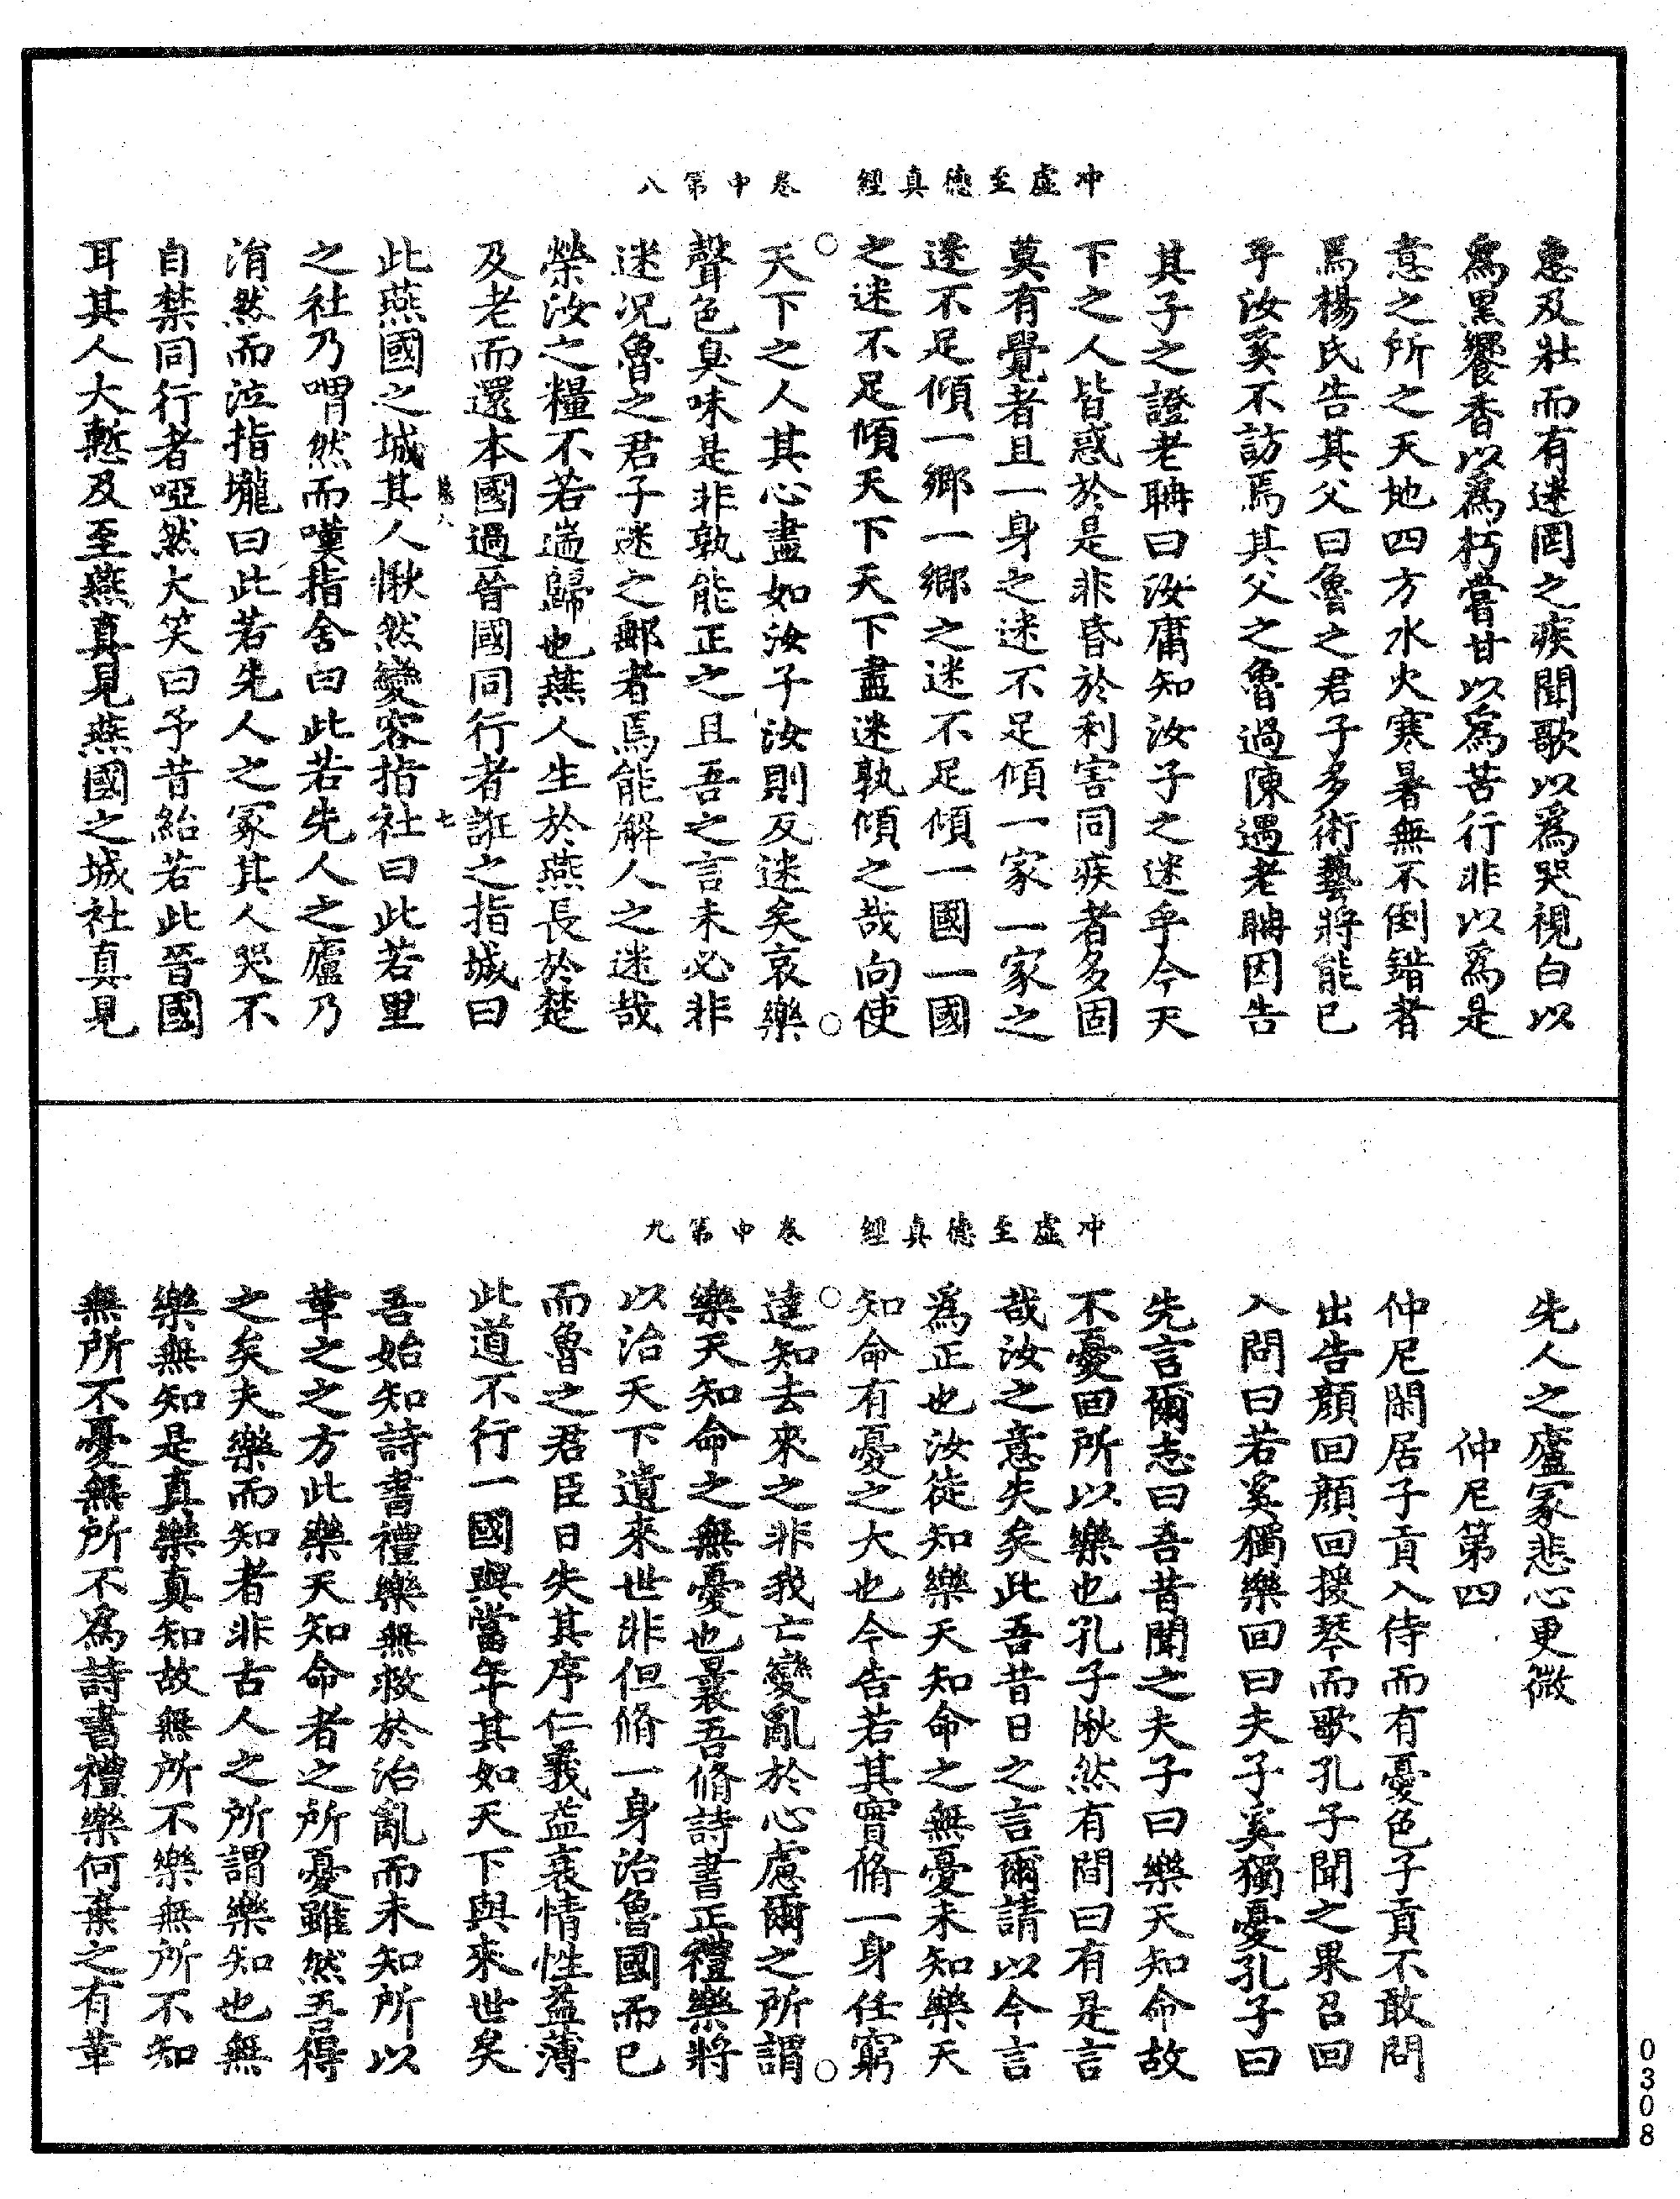 冲虛至德真經　卷中第八
惠及壯而有迷罔之疾聞歌以爲哭視白以
爲黑饗香以爲朽嘗甘以爲苦行非以爲是
意之所之天地四方水火寒暑無不倒錯者
焉楊氏告其父曰魯之君子多術藝將能已
乎汝奚不訪焉其父之魯過陳遇老聃因告
其子之證老聃曰汝庸知汝子之迷乎今天
下之人皆惑於是非昏於利害同疾者多固
莫有覺者且一身之迷不足傾一家一家之
迷不足傾一鄉一鄉之迷不足傾一國一國
之迷不足傾天下天下盡迷孰傾之哉向使
天下之人其心盡如汝子汝則反迷矣哀樂
聲色臭味是非孰能正之且吾之言未必非
迷況魯之君子迷之郵者焉能解人之迷哉
榮汝之糧不若遄歸也燕人生於燕長於楚
及老而還本國過晉國同行者誑之指城曰
七
此燕國之城其人愀然變容指社曰此若里
之社乃喟然而嘆指舍曰此若先人之廬乃
涓然而泣指壠曰此若先人之冢其人哭不
自禁同行者啞然大笑曰予昔紿若此晉國
耳其人大慙及至燕真見燕國之城社真見
冲虛至德真經　卷中第九
先人之廬冢悲心更微
仲尼第四
仲尼閑居子貢入侍而有憂色子貢不敢問
出告顏回顏回援琴而歌孔子聞之果召回
入問曰若奚獨樂回曰夫子奚獨憂孔子曰
先言爾志曰吾昔聞之夫子曰樂天知命故
不憂回所以樂也孔子愀然有間曰有是言
哉汝之意失矣此吾昔日之言爾請以今言
爲正也汝徒知樂天知命之無憂未知樂天
知命有憂之大也今告若其實脩一身任窮
達知去來之非我亡變亂於心慮爾之所謂
樂天知命之無憂也曩吾脩詩書正禮樂將
以治天下遺來世非但脩一身治魯國而已
而魯之君臣日失其序仁義益衰情性益薄
此道不行一國與當年其如天下與來世矣
吾始知詩書禮樂無救於治亂而未知所以
革之之方此樂天知命者之所憂雖然吾得
之矣夫樂而知者非古人之所謂樂知也無
樂無知是真樂真知故無所不樂無所不知
無所不憂無所不爲詩書禮樂何棄之有革
0308